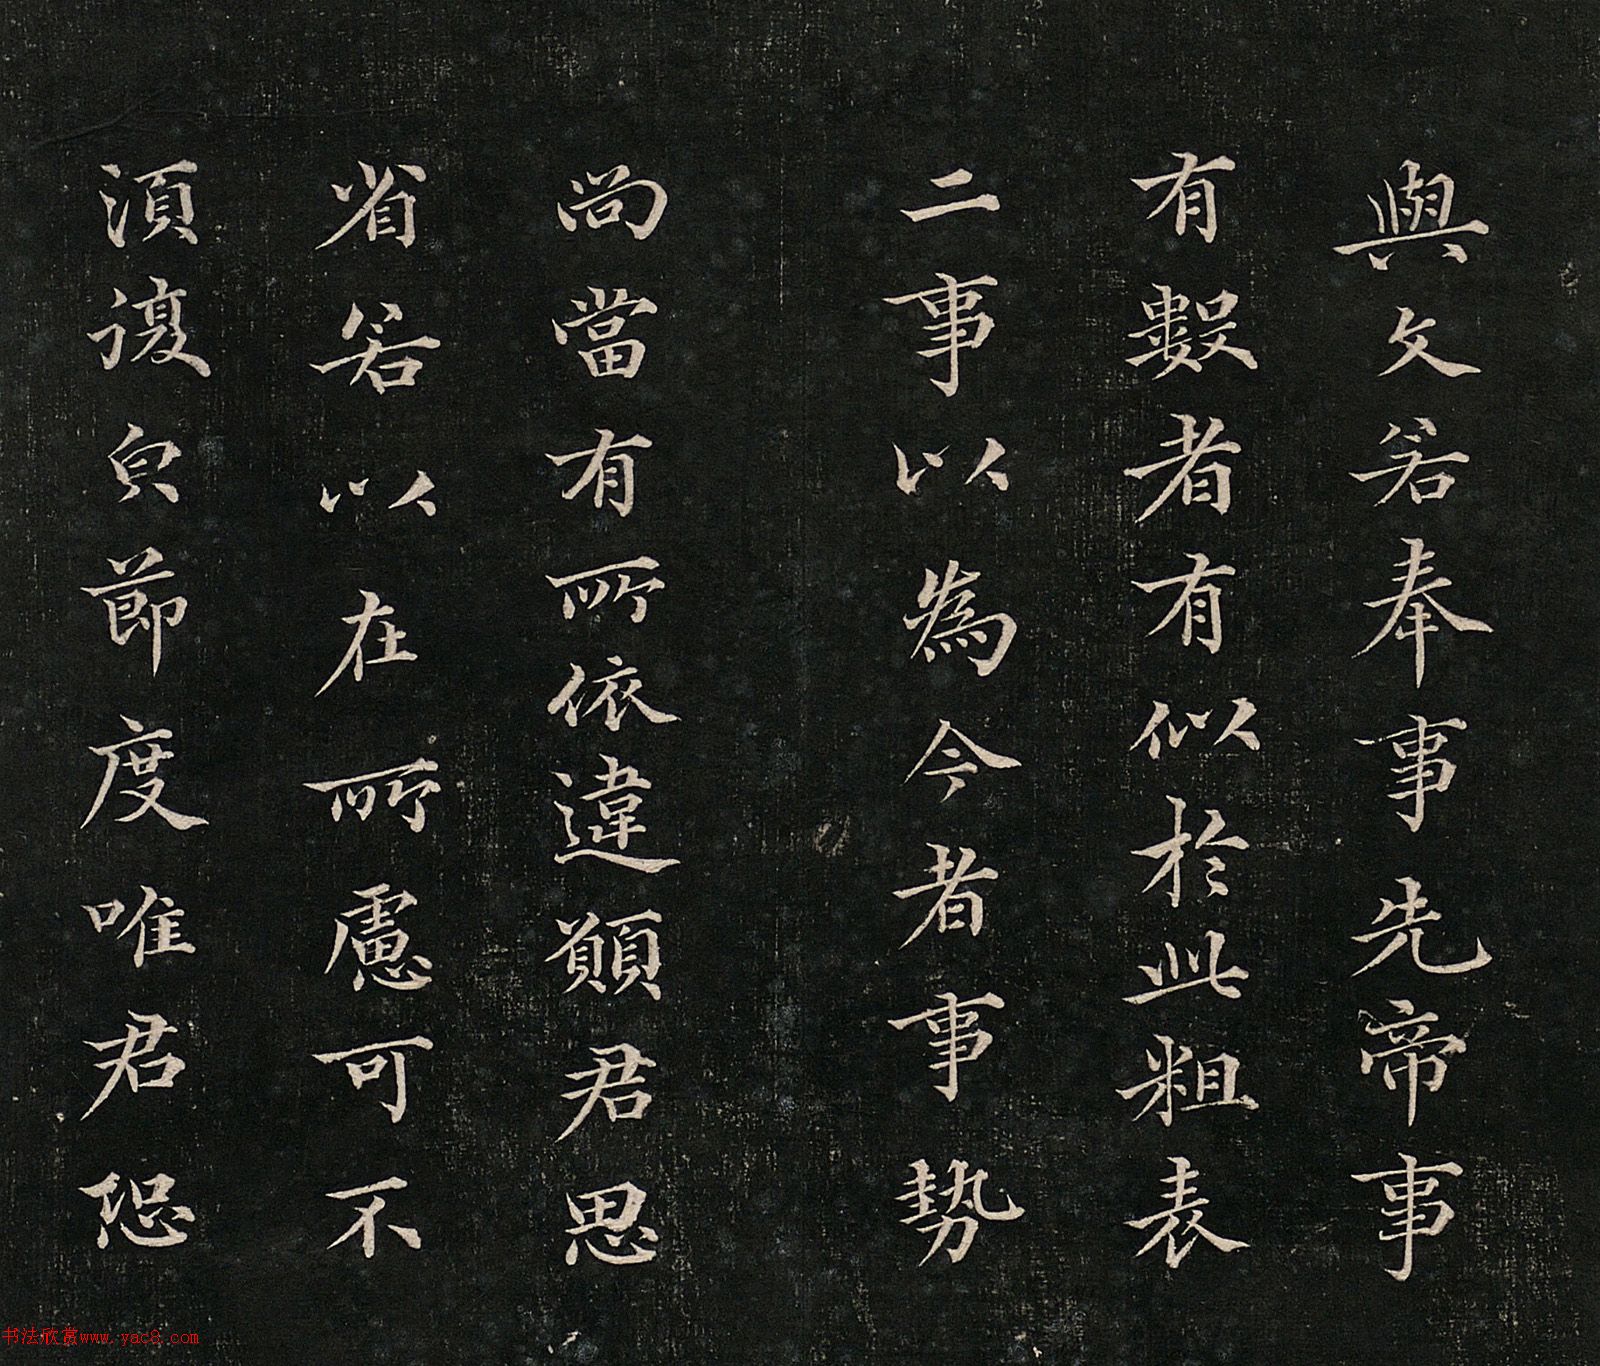 與文若奉事先帝事
有數者有似於此粗表
二事以為今者事勢
尚當有所依違願君思
省若以在所慮可不
須復皃節度唯君恐
书法欣赏www.yac8.com